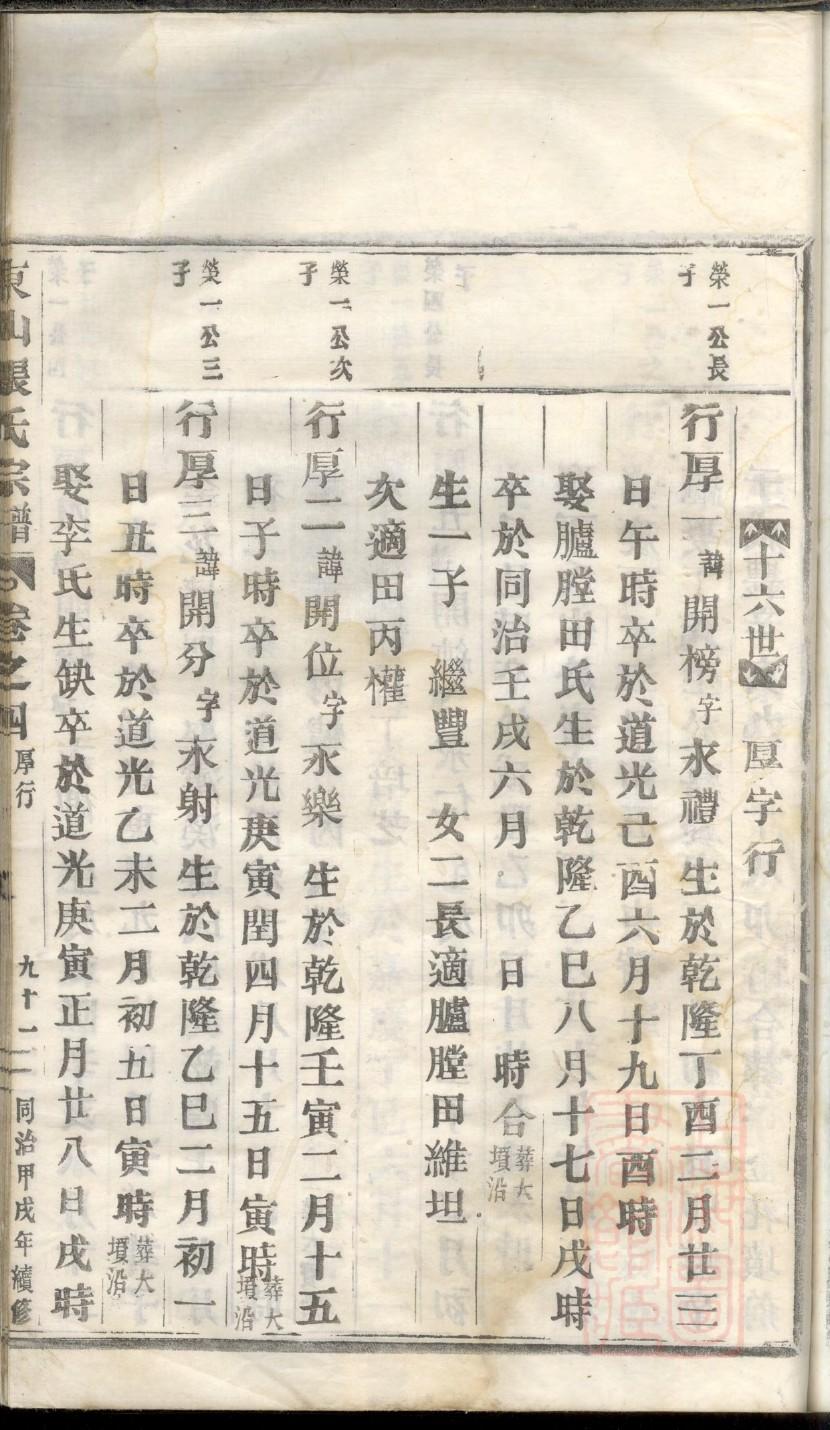 十六世 厚字行
榮一公長子
行厚一諱開榜字永禮 生於乾隆丁酉二月廿三
日午時卒於道光己酉六月十九日酉時
娶臚膛田氏生於乾隆乙巳八月十七日戌時
卒於同治壬戌六月 日 時合葬大墳沿
生一子 繼豐 女二長適臚膛田維坦
次適田丙權
榮一公次子
行厚二諱開位字永樂 生於乾隆壬寅二月十五
日子時卒於道光庚寅閏四月十五日寅時葬大墳沿
榮一公三子
行厚三諱開分字永射 生於乾隆乙巳二月初一
日丑時卒於道光乙未二月初五日寅時葬大墳沿
娶李氏生缺卒於道光庚寅正月廿八日戌時
東山張氏宗譜 卷之四 厚行 九十一 同治甲戌年續修